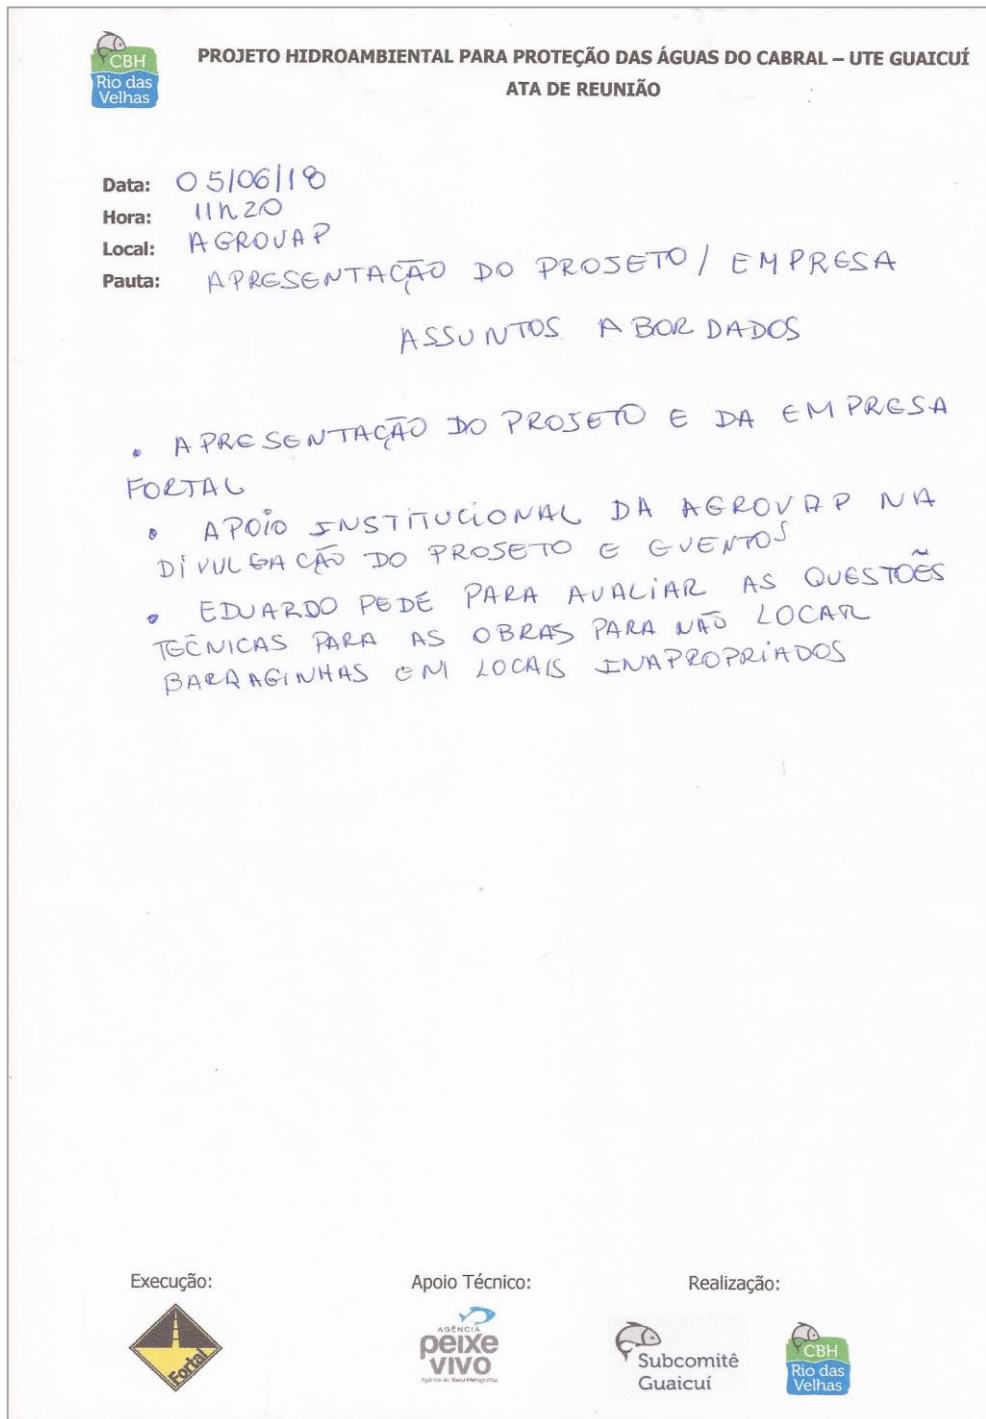 CBH
Rio das
Velhas
PROJETO HIDROAMBIENTAL PARA PROTEÇÃO DAS ÁGUAS DO CABRAL – UTE GUAICUÍ
ATA DE REUNIÃO
Data: 05/06/18
Hora: 11h20
Local: AGROVAP
Pauta: APRESENTAÇÃO DO PROJETO / EMPRESA
ASSUNTOS ABORDADOS
• APRESENTAÇÃO DO PROJETO E DA EMPRESA
FORTAL
• APOIO INSTITUCIONAL DA AGROVAP NA
DIVULGAÇÃO DO PROJETO E EVENTOS
• EDUARDO PEDE PARA AVALIAR AS QUESTÕES
TÉCNICAS PARA AS OBRAS PARA NÃO LOCAR
BARRAGINHAS EM LOCAIS INAPROPRIADOS
Execução:
Apoio Técnico:
Realização:
Fortal
AGÊNCIA
peixe
vivo
Agência de Bacia Hidrográfica
Subcomitê
Guaicuí
CBH
Rio das
Velhas